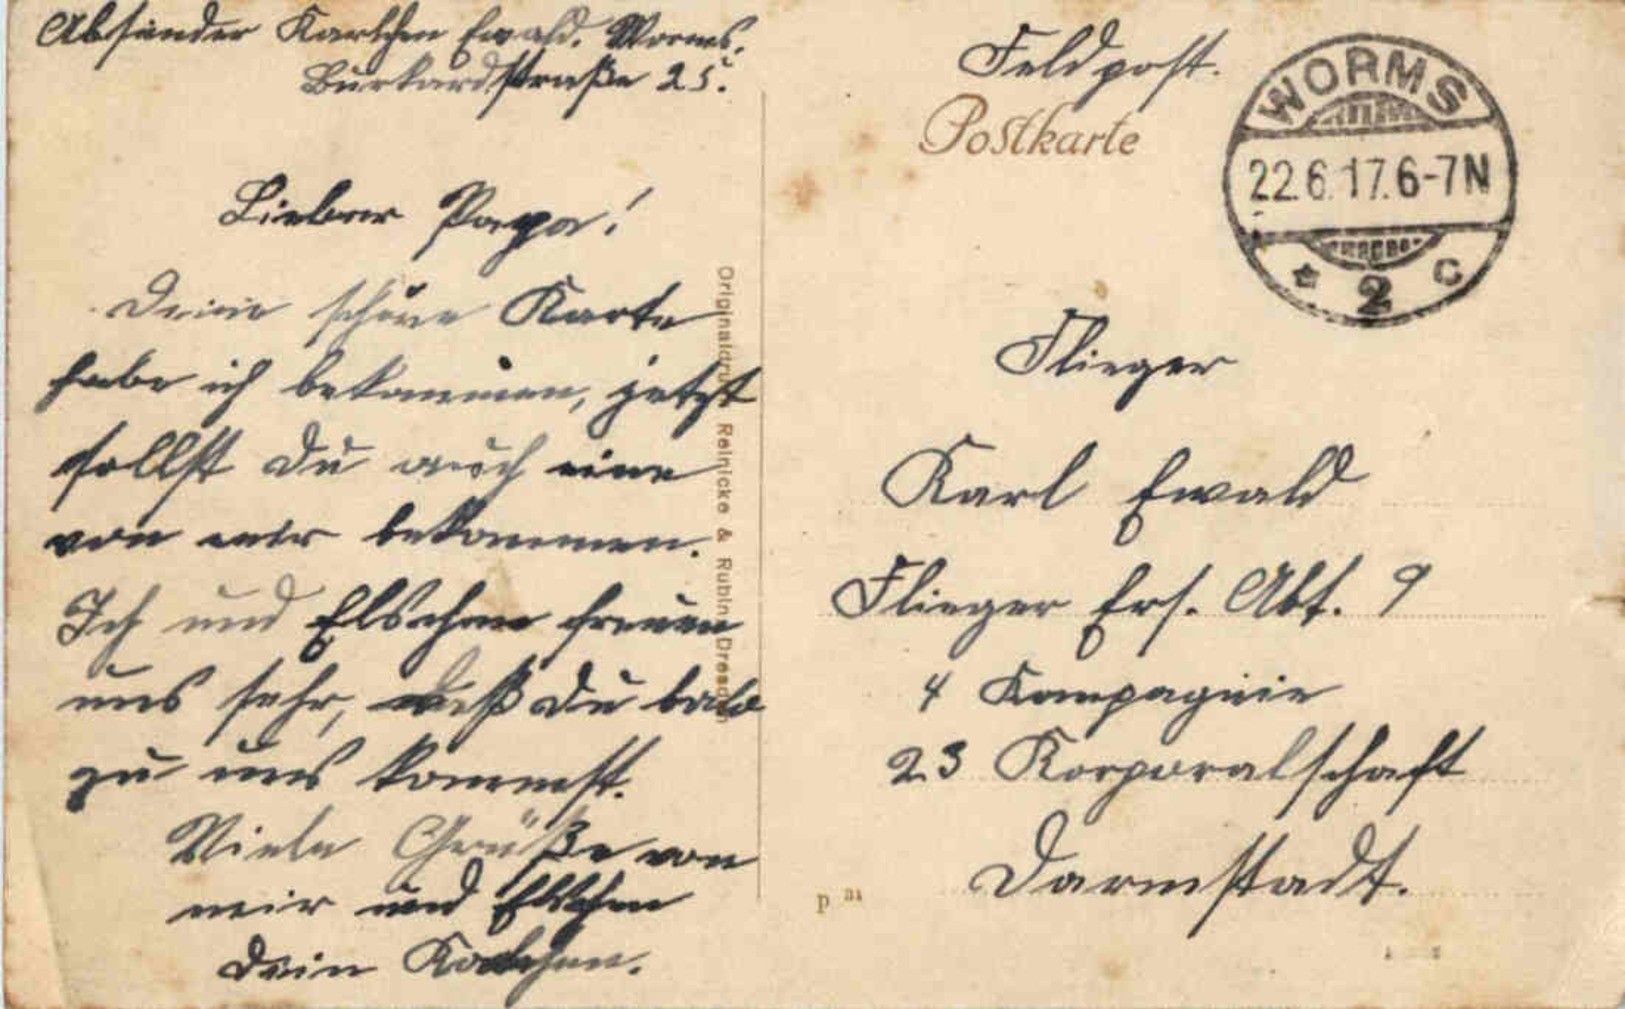 Absender Karlchen Ewald. Worms.
Burkardstraße 25.
Lieber Papa!
Deine schöne Karte
habe ich bekommen, jetzt
sollst Du auch eine
von mir bekommen.
Ich und Elschen freuen
uns sehr, daß Du bald
zu uns kommst.
Viele Grüße von
mir und Elschen
Dein Karlchen.
Originaldruck Reinicke & Rubin Dresden
Feldpost.
Postkarte
WORMS
22.6.17.6-7N
* 2 C
Flieger
Karl Ewald
Flieger Ers. Abt. 9
4 Kompagnie
23 Korporalschaft
Darmstadt.